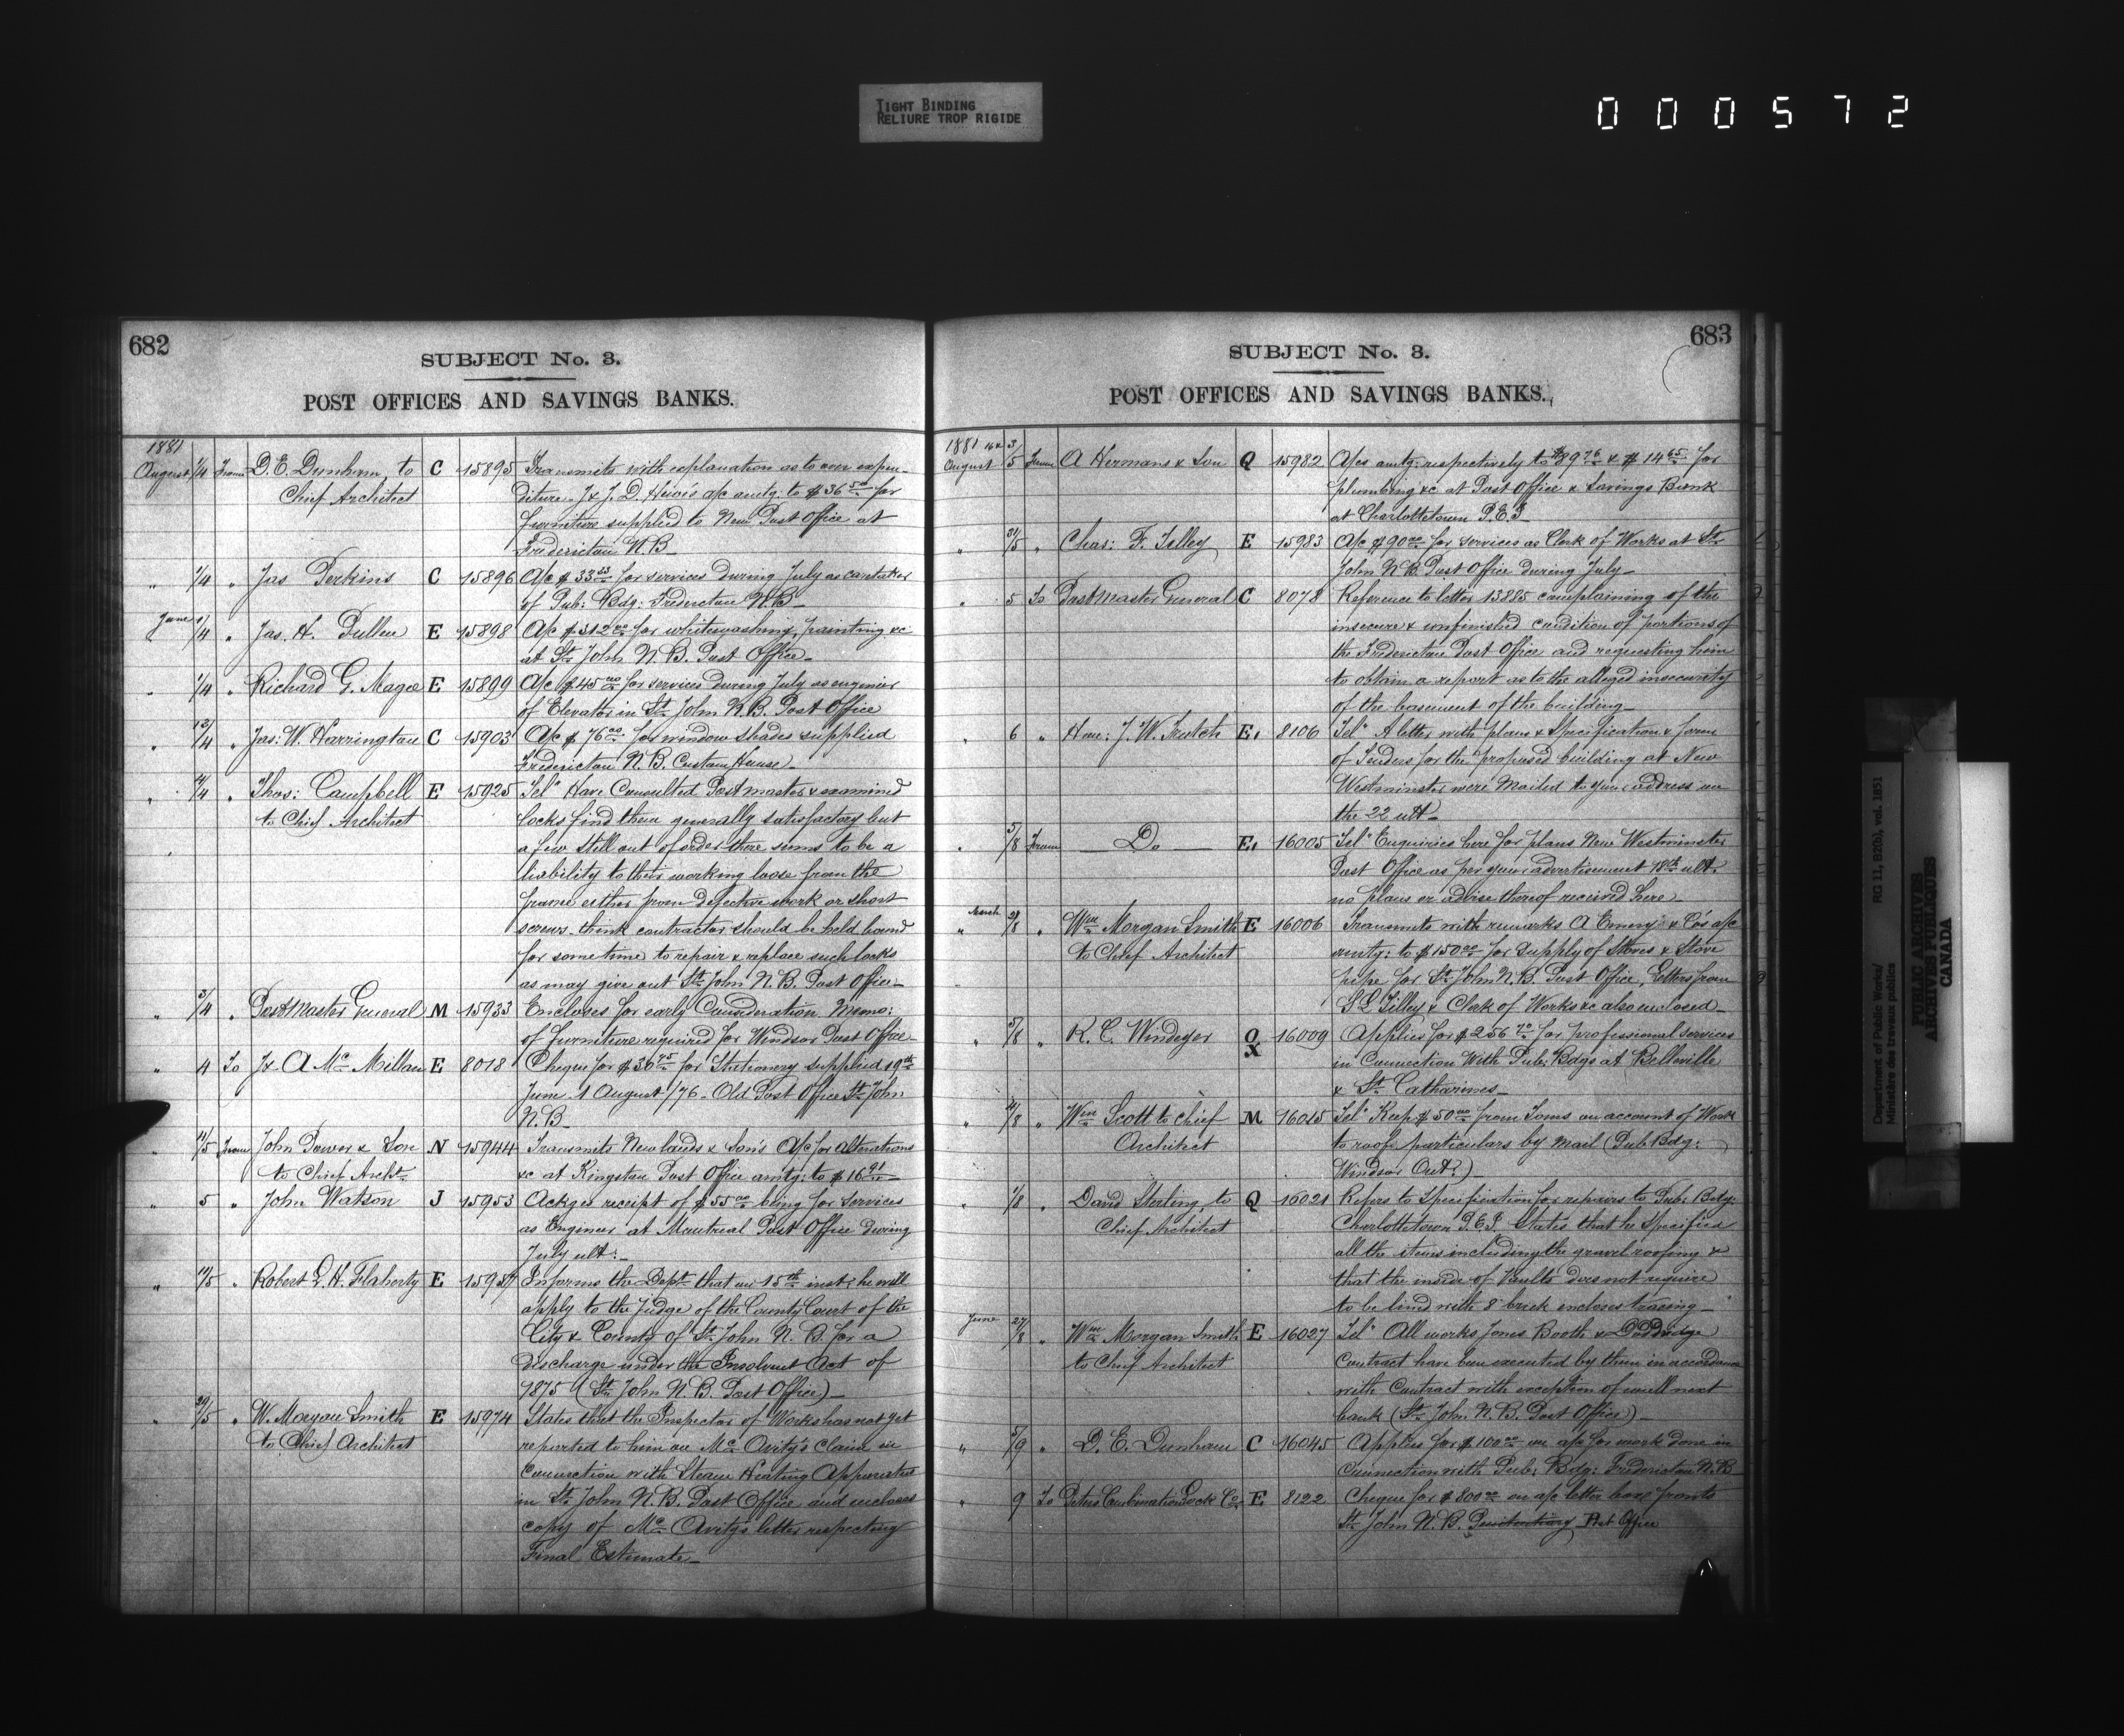 TIGHT BINDING
RELIURE TROP RIGIDE
000572
682
SUBJECT No. 3.
POST OFFICES AND SAVINGS BANKS.
1881
August 1/4 From D. E. Dunham to C 15895 Transmits with explanation as to over expen-
Chief Architect diture J & J. D. Howe's a/c amtg: to $36 50 for
furniture supplied to New Post Office at
Fredericton N.B.
" 1/4 " Jas Perkins C 15896 A/c $33 33 for services during July as caretaker
of Pub: Bdg: Fredericton N.B.
June 1/4 " Jas. H. Pullen E 15898 A/c $312 00 for whitewashing, painting &c
at St John N.B. Post Office
" 1/4 " Richard G. Magee E 15899 A/c $45 00 for services during July as engineer
of Elevator in St John N.B. Post Office
" 13/4 " Jas: W. Harrington C 15903 A/c $76 00 for window shades supplied
Fredericton N.B. Custom House
" 4/4 " Thos: Campbell E 15925 Tel" Have Consulted Postmaster & examined
to Chief Architect locks find them generally satisfactory but
a few still out of order there seems to be a
liability to their working loose from the
frame either from defective work or short
screws. think contractor should be held bound
for some time to repair & replace such locks
as may give out St John N.B. Post Office
" 3/4 " Postmaster General M 15933 Encloses for early Consideration Memo:
of furniture required for Windsor Post Office
" 4 To J & A McMillan E 8018 Cheque for $30 75 for Stationery supplied 19th
June 1 August /76 - Old Post Office St John
N.B.
" 11/5 From John Power & Son N 15944 Transmits Newlands & Son's A/c for alterations
to Chief Archt &c at Kingston Post Office amtg: to $16 91
" 5 " John Watson J 15953 Ackges receipt of $55 00 being for services
as Engineer at Montreal Post Office during
July ult:
" 11/5 " Robert D. H. Flaherty E 15957 Informs the Dept that on 15th inst: he will
apply to the Judge of the County Court of the
City & County of St John N.B. for a
discharge under the Insolvent Act of
1875 (St John N.B. Post Office)
" 29/5 " W. Morgan Smith E 15974 States that the Inspector of Works has not yet
to Chief Architect reported to him on McAvity's claim in
connection with Steam Heating Apparatus
in St John N.B. Post Office and encloses
copy of McAvity's letter respecting
Final Estimate
683
SUBJECT No. 3.
POST OFFICES AND SAVINGS BANKS.
1881
August 3/5 From A Hermans & Son Q 15982 A/cs amtg: respectively to $89 76 & $14 65 for
plumbing &c at Post Office & Savings Bank
at Charlottetown P.E.I.
" 31/5 " Chas: F. Tilley E 15983 A/c $90 00 for services as Clerk of Works at St
John N.B. Post Office during July
" 5 To Postmaster General C 8078 Reference to letter 13885 complaining of the
insecure & unfinished condition of portions of
the Fredericton Post Office and requesting him
to obtain a report as to the alleged insecurity
of the basement of the building
" 6 " Hon: J. W. Trutch E, 8106 Tel" A letter with plans & Specification & form
of Tenders for the proposed building at New
Westminster were Mailed to your address on
the 22 ult
" 5/8 From Do E, 16005 Tel" Enquiries here for plans New Westminster
Post Office as per your advertisement 18th ult.
no plans or advise thereof received here
March
" 28/8 " Wm Morgan Smith E 16006 Transmits with remarks A Emery & Co's a/c
to Chief Architect amtg: to $150 00 for supply of Stoves & Stove
pipe for St John N.B. Post Office, Letters from
S L Tilley & Clerk of Works &c also enclosed
" 5/8 " R. C. Windeyer O X 16009 Applies for $256 70 for professional services
in Connection With Pub: Bdgs at Belleville
& St Catharines
" 4/8 " Wm Scott to Chief M 16015 Tel" $50 00 from Toms on account of Work
Architect to roof particulars by mail (Pub Bdg:
Windsor Ont:)
" 1/8 " David Sterling, to Q 16021 Refers to Specification for repairs to Pub: Bdg:
Chief Architect Charlottetown P.E.I. States that he Specified
all the items including the gravel roofing &
that the inside of Vaults does not require
to be lined with 8" brick encloses tracing
June 27/8 " Wm Morgan Smith E 16027 Tel" All works Jones Booth & Doddridge
to Chief Architect contract have been executed by them in accordance
with Contract with exception of wall next
bank (St John N.B. Post Office)
" 5/9 " D. E. Dunham C 16045 Applies for $100 00 on a/c for work done in
connection with Pub: Bdg: Fredericton N.B.
" 9 To Peters Combination Lock Co E 8122 Cheque for $800 00 on a/c letter box fronts
St John N.B. Penitentiary Post Office
Department of Public Works/
Ministère des travaux publics
RG 11, B2(b), vol. 1851
PUBLIC ARCHIVES
ARCHIVES PUBLIQUES
CANADA